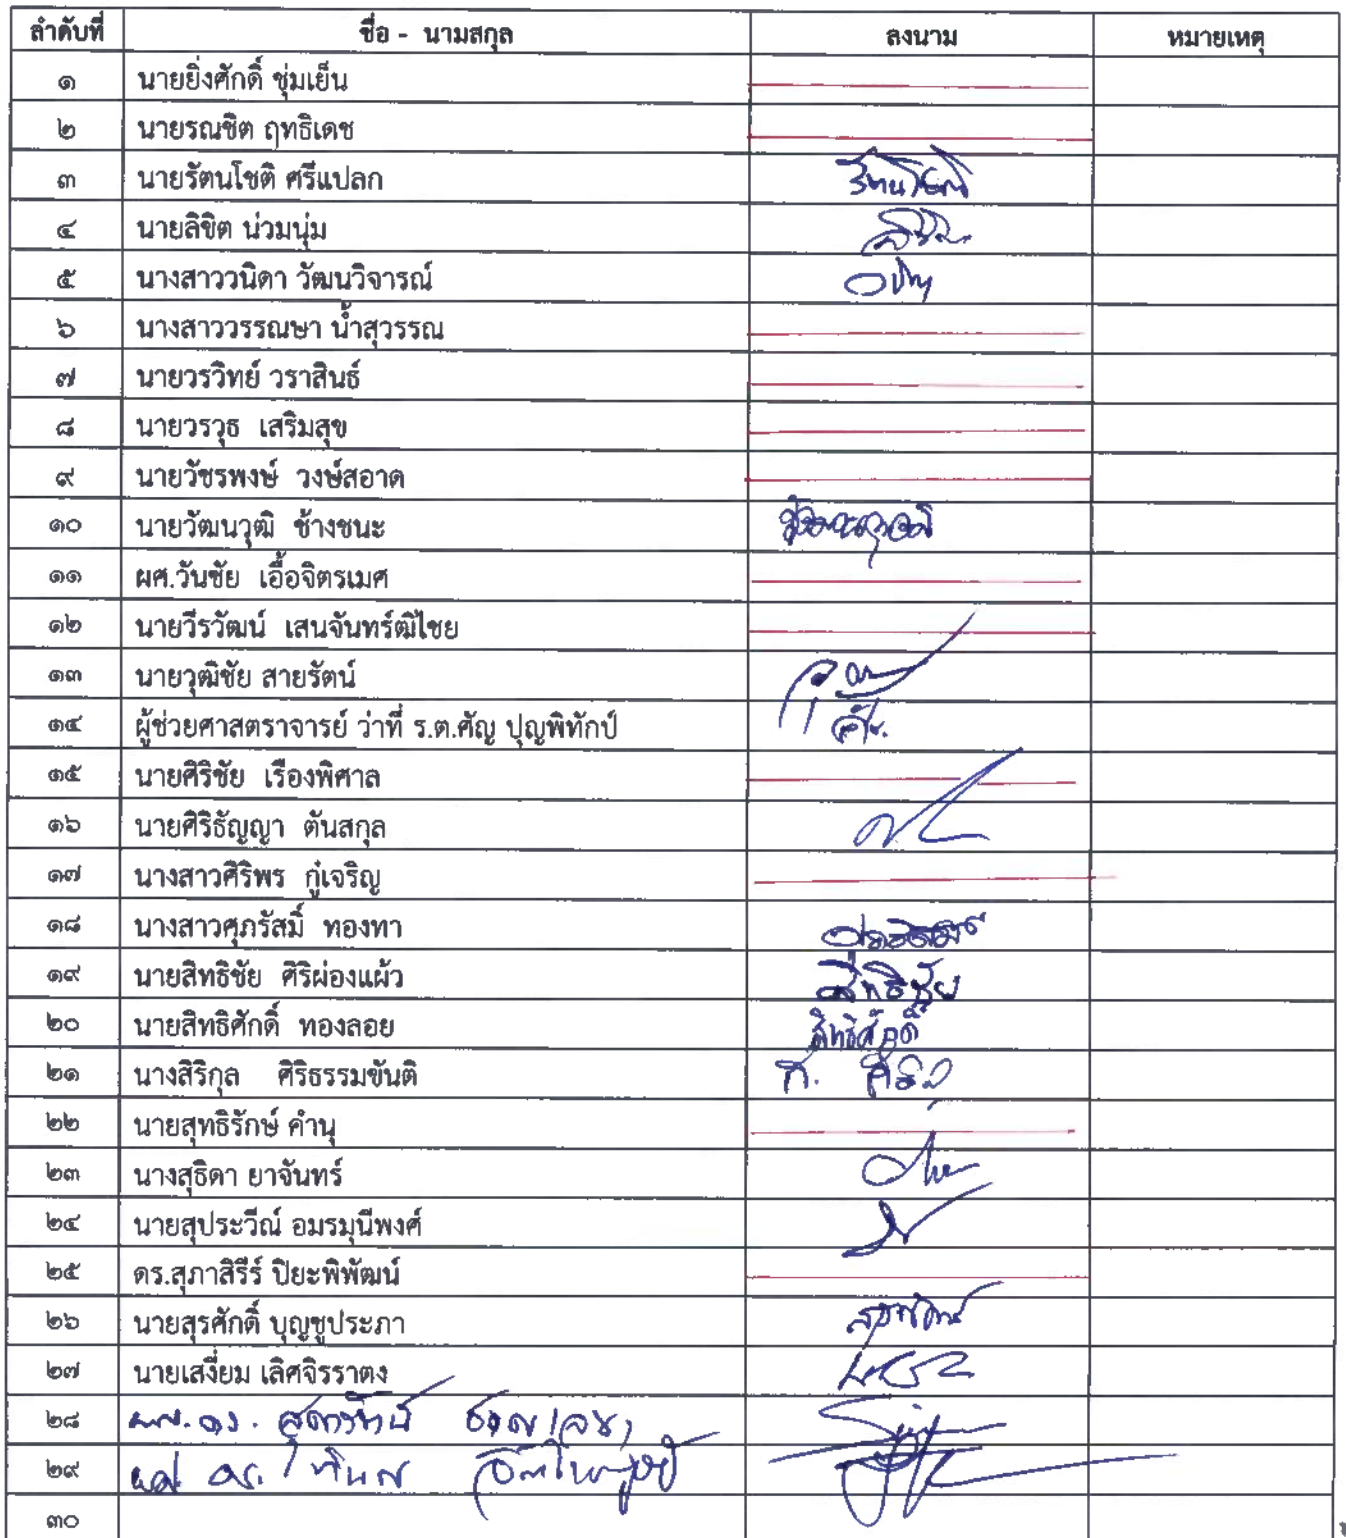 ลำดับที่ ชื่อ - นามสกุล ลงนาม หมายเหตุ
๑ นายยิ่งศักดิ์ ชุ่มเย็น
๒ นายรณชิต ฤทธิเดช
๓ นายรัตนโชติ ศรีแปลก รัตนโชติ
๔ นายลิขิต น่วมนุ่ม ลิขิต
๕ นางสาววนิดา วัฒนวิจารณ์
๖ นางสาววรรณษา น้ำสุวรรณ
๗ นายวรวิทย์ วราสินธ์
๘ นายวรวุธ เสริมสุข
๙ นายวัชรพงษ์ วงษ์สอาด
๑๐ นายวัฒนวุฒิ ช้างชนะ
๑๑ ผศ.วันชัย เอื้อจิตรเมศ
๑๒ นายวีรวัฒน์ เสนจันทร์ฒิไชย
๑๓ นายวุฒิชัย สายรัตน์
๑๔ ผู้ช่วยศาสตราจารย์ ว่าที่ ร.ต.ศัญ ปุญพิทักป์
๑๕ นายศิริชัย เรืองพิศาล
๑๖ นายศิริธัญญา ตันสกุล
๑๗ นางสาวศิริพร กู่เจริญ
๑๘ นางสาวศุภรัสมิ์ ทองทา
๑๙ นายสิทธิชัย ศิริผ่องแผ้ว สิทธิชัย
๒๐ นายสิทธิศักดิ์ ทองลอย สิทธิศักดิ์
๒๑ นางสิริกุล ศิริธรรมขันติ
๒๒ นายสุทธิรักษ์ คำนุ
๒๓ นางสุธิดา ยาจันทร์
๒๔ นายสุประวีณ์ อมรมุนีพงศ์
๒๕ ดร.สุภาสิรีร์ ปิยะพิพัฒน์
๒๖ นายสุรศักดิ์ บุญชูประภา
๒๗ นายเสงี่ยม เลิศจิรราตง
๒๘ ผศ.ดร.
๒๙ ผศ ดร.
๓๐